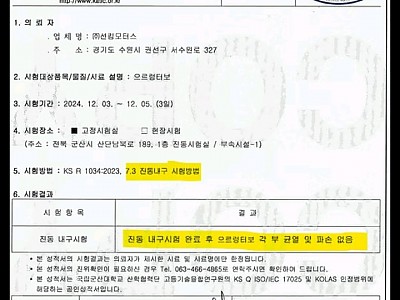 http://www.kasic.or.kr
1. 의 뢰 자
. 업 체 명 : ㈜선킴모터스
. 주 소 : 경기도 수원시 권선구 서수원로 327
2. 시험대상품목/물질/시료 설명 : 으르렁터보
3. 시험기간 : 2024. 12. 03. ~ 12. 05. (3일)
4. 시험장소 : ■ 고정시험실 □ 현장시험
(주소 : 전북 군산시 산단남북로 189, 1층 진동시험실 / 부속시설-1)
5. 시험방법 : KS R 1034:2023, 7.3 진동내구 시험방법
6. 시험결과
시 험 항 목 결 과
진동 내구시험 진동 내구시험 완료 후 으르렁터보 각 부 균열 및 파손 없음
* 본 성적서의 시험결과는 의뢰자가 제시한 시료 및 시료명에만 한정됩니다.
* 본 성적서의 진위확인이 필요하신 경우 Tel. 063-466-4865로 연락주시면 확인하여 드립니다.
* 본 성적서는 국립군산대학교 산학협력단 고등기술융합연구원의 KS Q ISO/IEC 17025 및 KOLAS 인정범위에
해당하는 공인성적서입니다.